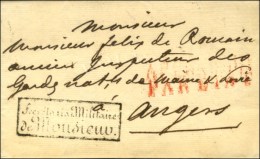 Monsieur
Monsieur felix de Romain
ancien Inspecteur des
Gardes nat.les de Maine & Loire
à
Angers
Secrétariat Militaire
de Monsieur.